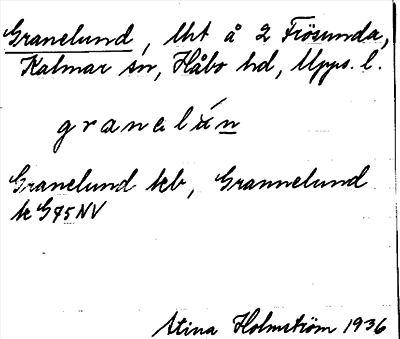 Granelund, lht å 2 Fiösunda,
Kalmar sn, Håbo hd, Upps. l.
granelún
Granelund keb, Grannelund
tc G95NV
Stina Holmström 1936